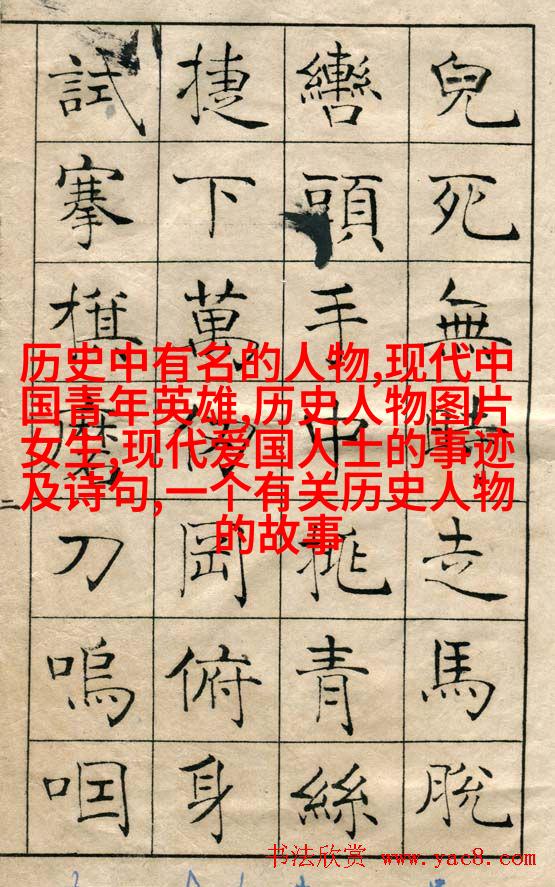 兒死無時走馬脫
轡頭手中挑青絲
捷下萬仞岡俯身
試搴旗磨刀嗚咽
二
历史中有名的人物,现代中
国青年英雄,历史人物图片
女生,现代爱国人士的事迹
及诗句,一个有关历史人物
的故事
书法欣赏 www.yac8.com